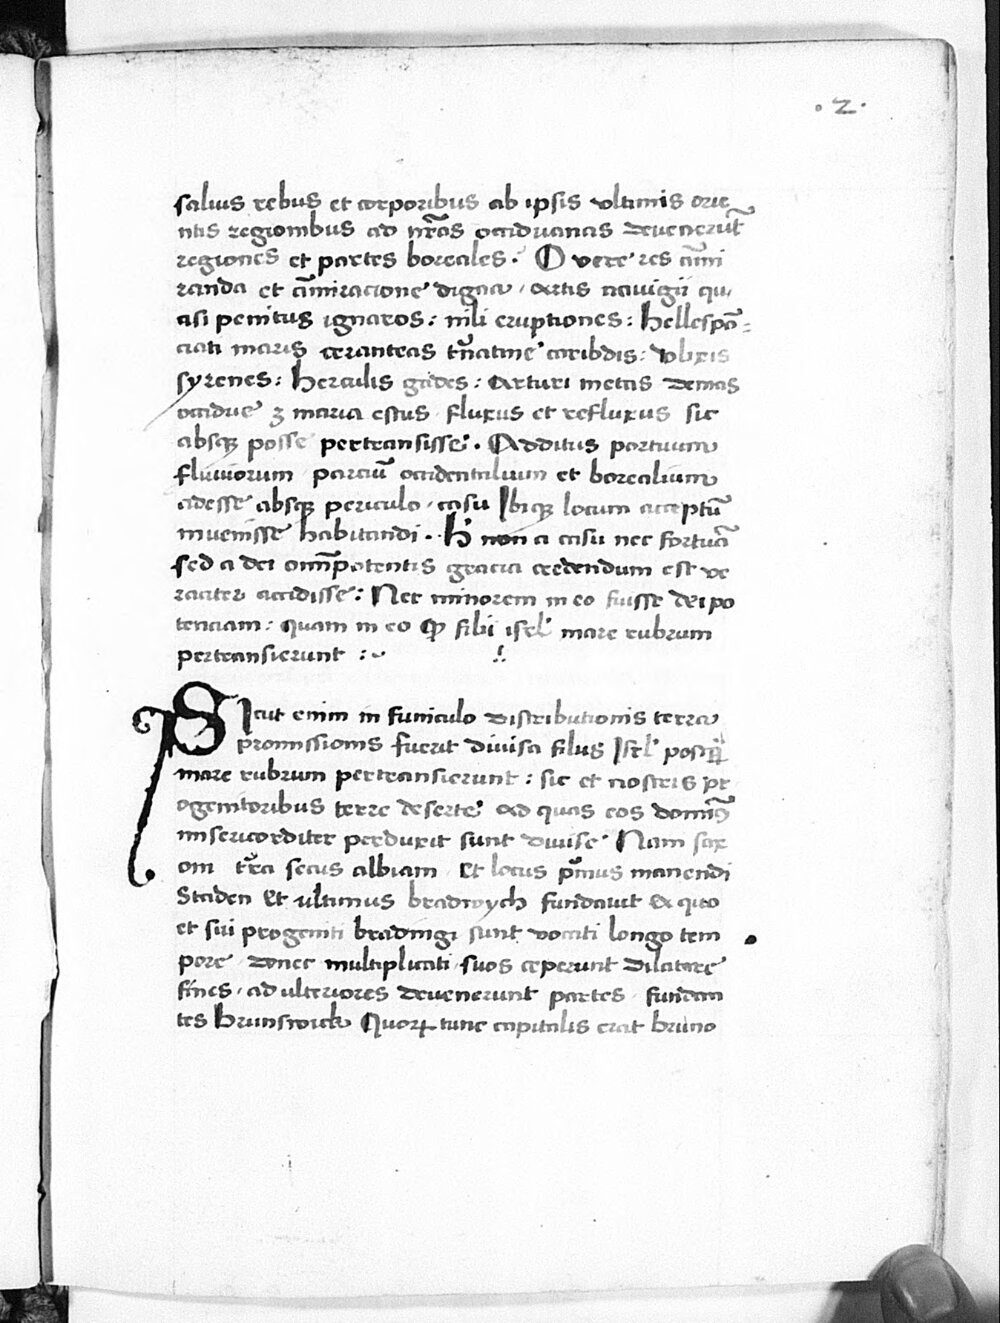 .2.
saluis rebus et corporibus ab ipsis vltimis orie
ntis regionibus ad nr̃as occiduanas deuenerũt
regiones et partes boreales. O vere res am̃i
randa et am̃iracione digna, artis nauigii qu
asi penitus ignaros: nili eruptiones: hellespõ=
ciati maris ceranteas caribdis: vlixis
syrenes: herculis gades: arturi metas demas
occidue ꝫ maria estus fluxus et refluxus sic
absqꝫ posse pertransisse. Additus portuum
fluuiorum parciũ occidentalium et borealium
adesse absqꝫ periculo, casu Ibiqꝫ locum acceptũ
inuenisse habitandi. h' non a casu nec fortuã
sed a dei omĩpotentis gracia credendum est ve
raciter accidisse: Nec minorem in eo fuisse dei po
tenciam: quam in eo ꝙ filii isrl' mare rubrum
pertransierunt :~
SIcut enim in funiculo distributionis terra
promissionis fuerit diuisa filiis Isrl' posꝗ̃
mare rubrum pertransierunt: sic et nostris pr
ogenitoribus terre deserte ad quas eos domiꝰ
misericorditer perduxit sunt diuise Nam sax
om tr̃a secus albiam Et locus p̃mus manendi
Staden Et vltimus bradwych fundauit Ex quo
et sui progeniti bradingi sunt vocati longo tem
pore donec multiplicati suos ceperunt dilatare
fines, ad vlteriores deuenerunt partes fundan
tes brunswick Quoꝝ tunc capitalis erat bruno